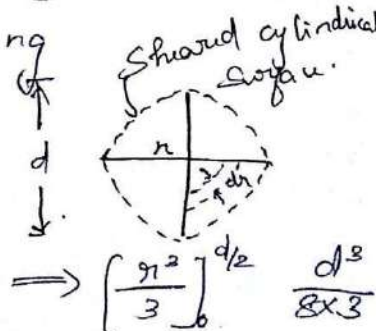 ng
Sheared cylindrical
surface.
d
r
r
dr
⟹ [r³/3]₀^d/2  d³/8×3